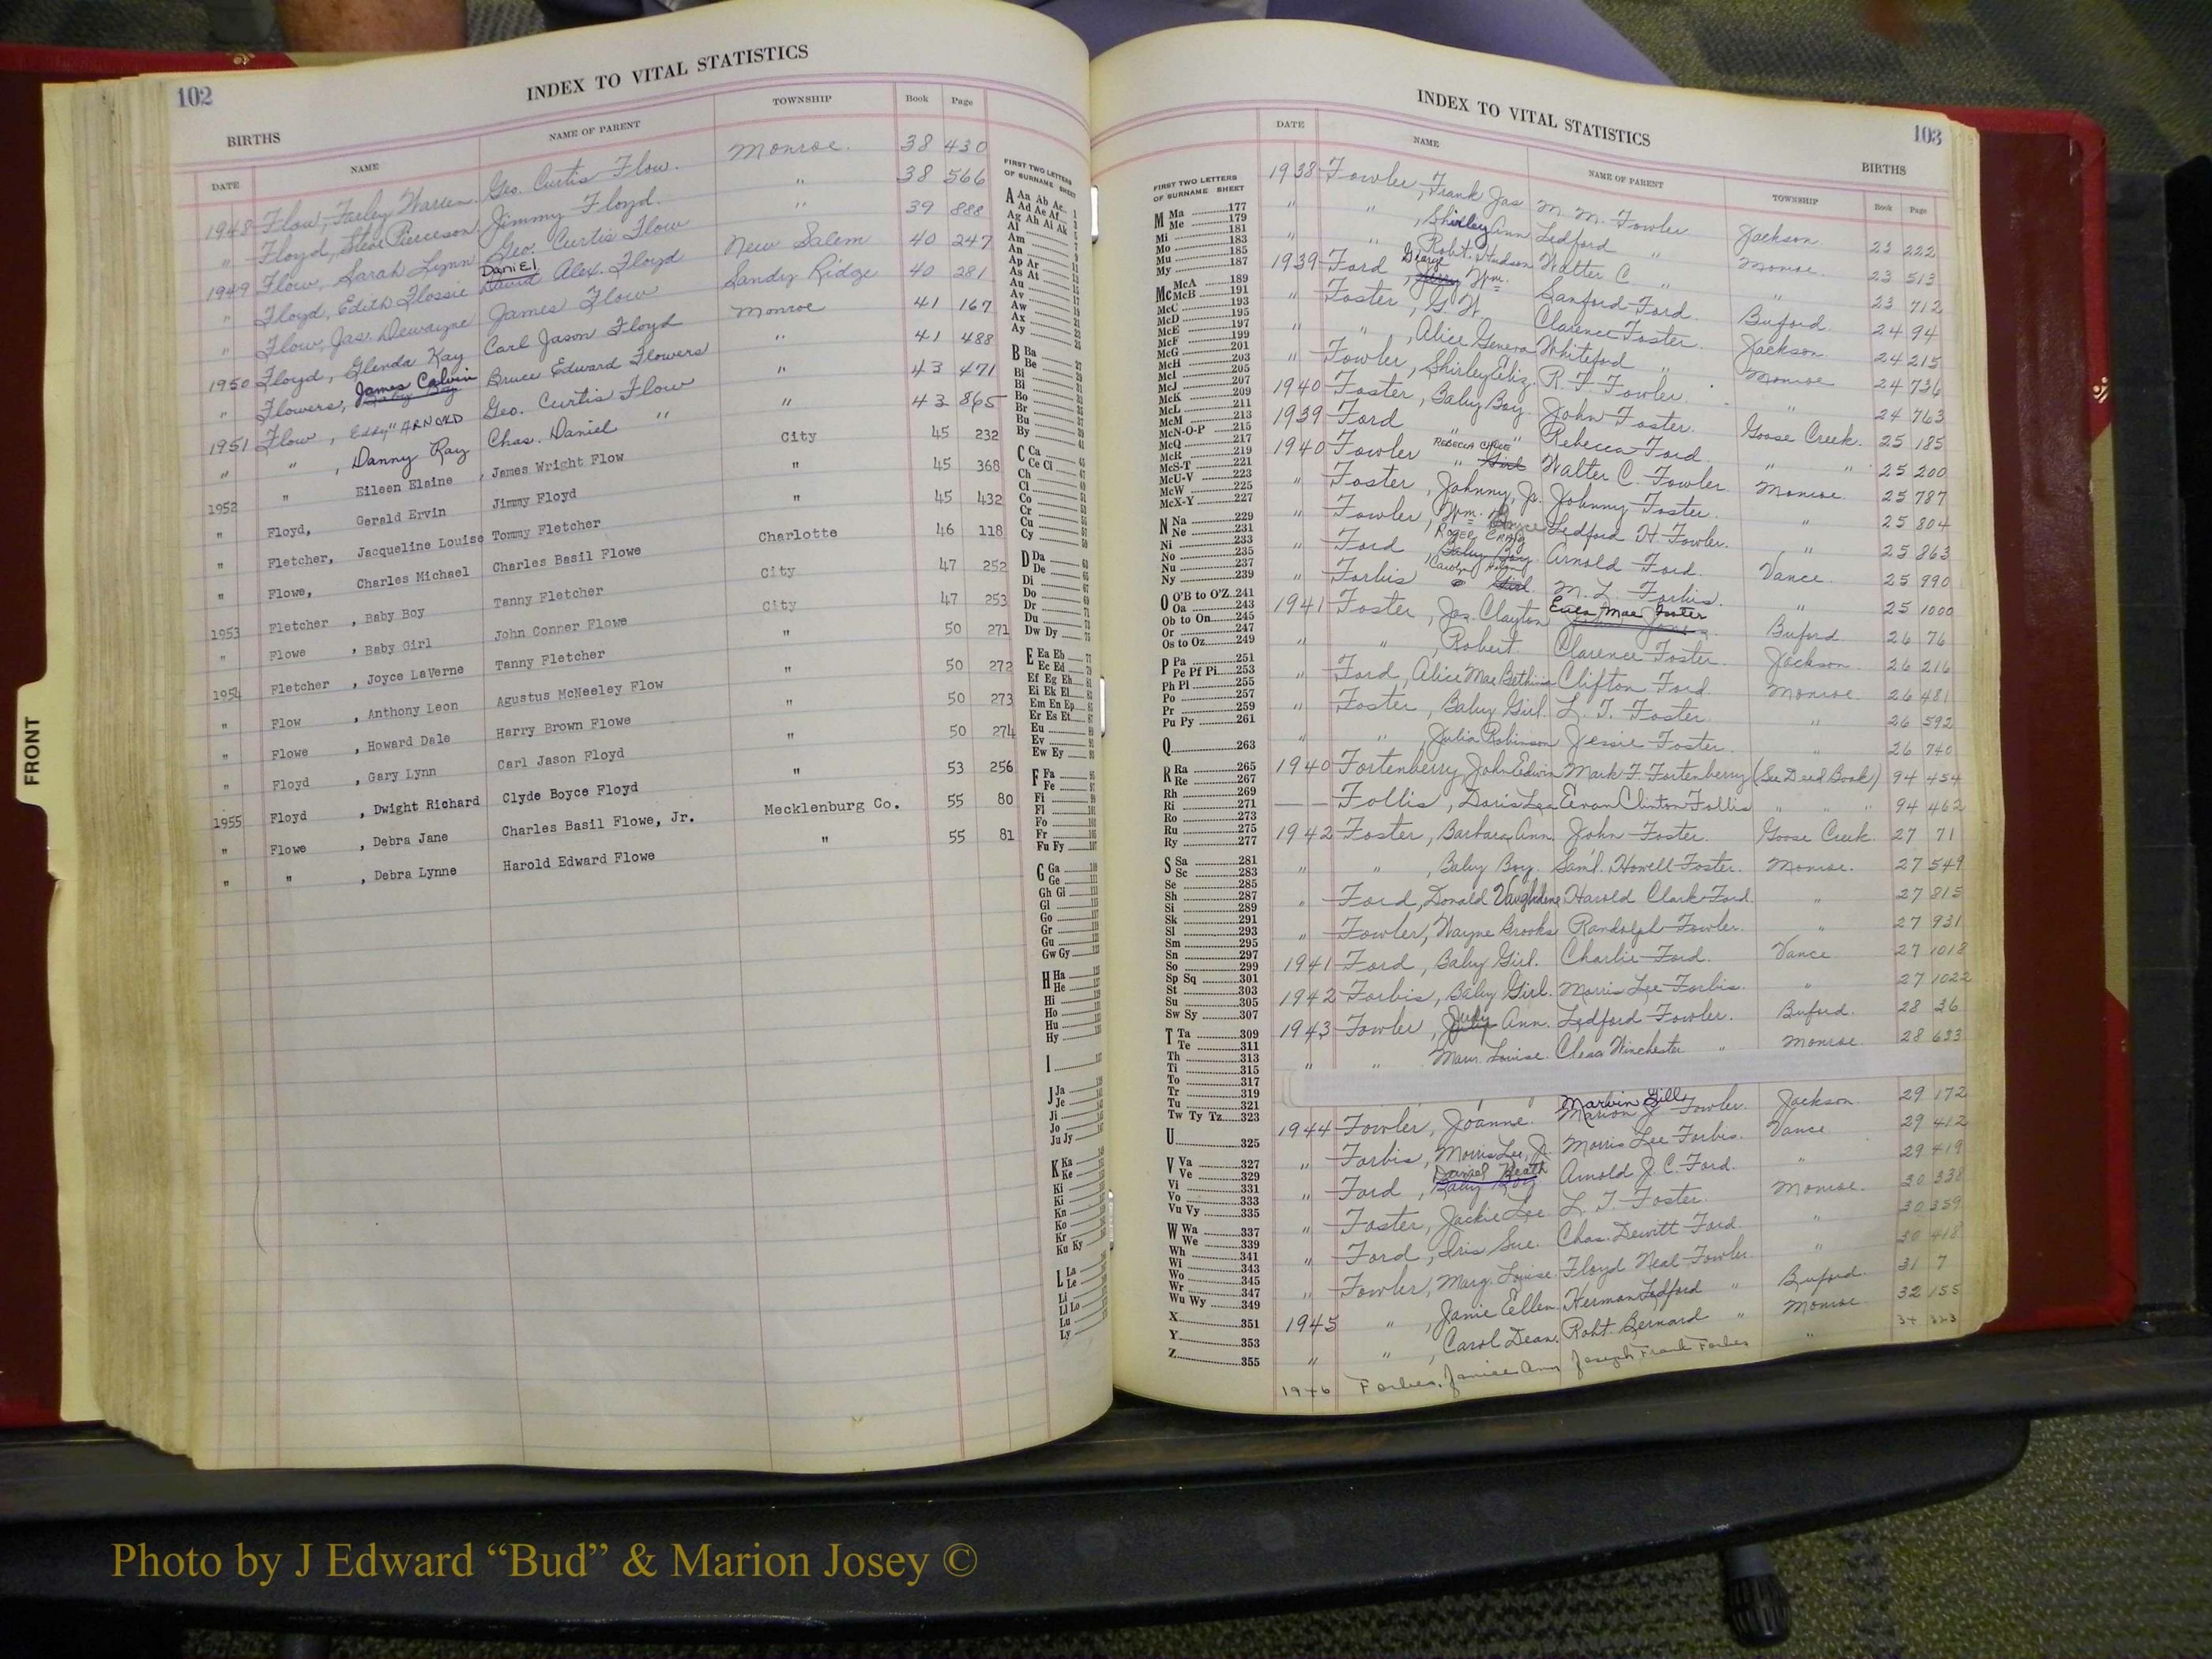 102
INDEX TO VITAL STATISTICS
BIRTHS
DATE NAME NAME OF PARENT TOWNSHIP Book Page
1948 Flow, Farley Warren Geo. Curtis Flow. Monroe. 38 430
" Floyd, Steve Pierceson Jimmy Floyd. " 38 566
1949 Flow, Sarah Lynn Geo. Curtis Flow " 39 888
" Floyd, Edith Flossie Daniel David Alex. Floyd New Salem 40 247
" Flow, Jas. Dewayne James Flow Sandy Ridge 40 281
1950 Floyd, Glenda Kay Carl Jason Floyd Monroe 41 167
" Flowers, James Calvin Baby Boy Bruce Edward Flowers " 41 488
1951 Flow, Eddy "ARNOLD Geo. Curtis Flow " 43 471
" " , Danny Ray Chas. Daniel " " 43 865
1952 " Eileen Elaine , James Wright Flow City 45 232
" Floyd, Gerald Ervin Jimmy Floyd " 45 368
" Fletcher, Jacqueline Louise Tommy Fletcher " 45 432
" Flowe, Charles Michael Charles Basil Flowe Charlotte 46 118
1953 Fletcher , Baby Boy Tanny Fletcher City 47 252
" Flowe , Baby Girl John Conner Flowe City 47 253
1954 Fletcher , Joyce LaVerne Tanny Fletcher " 50 271
" Flow , Anthony Leon Agustus McNeeley Flow " 50 272
" Flowe , Howard Dale Harry Brown Flowe " 50 273
" Floyd , Gary Lynn Carl Jason Floyd " 50 274
1955 Floyd , Dwight Richard Clyde Boyce Floyd " 53 256
" Flowe , Debra Jane Charles Basil Flowe, Jr. Mecklenburg Co. 55 80
" " , Debra Lynne Harold Edward Flowe " 55 81
FRONT
FIRST TWO LETTERS
OF SURNAME SHEET
A Aa Ab Ac
Ad Ae Af
Ag Ah Ai Ak
Al
Am
An
Ap Ar
As At
Au
Av
Aw
Ax
Ay
B Ba
Be
Bi
Bl
Bo
Br
Bu
By
C Ca
Ce Ci
Ch
Cl
Co
Cr
Cu
Cy
D Da
De
Di
Do
Dr
Du
Dw Dy
E Ea Eb
Ec Ed
Ef Eg Eh
Ei Ek El
Em En Ep
Er Es Et
Eu
Ev
Ew Ey
F Fa
Fe
Fi
Fl
Fo
Fr
Fu Fy
G Ga
Ge
Gh Gi
Gl
Go
Gr
Gu
Gw Gy
H Ha
He
Hi
Ho
Hu
Hy
I
J Ja
Je
Ji
Jo
Ju Jy
K Ka
Ke
Ki
Kl
Kn
Ko
Kr
Ku Ky
L La
Le
Li
Ll Lo
Lu
Ly
INDEX TO VITAL STATISTICS
103
BIRTHS
FIRST TWO LETTERS
OF SURNAME SHEET
M Ma 177
Me 179
Mi 181
Mo 183
Mu 185
My 187
Mc McA 189
McB 191
McC 193
McD 195
McE 197
McF 199
McG 201
McH 203
McI 205
McJ 207
McK 209
McL 211
McM 213
McN-O-P 215
McQ 217
McR 219
McS-T 221
McU-V 223
McW 225
McX-Y 227
N Na 229
Ne 231
Ni 233
No 235
Nu 237
Ny 239
O O'B to O'Z 241
Oa 243
Ob to On 245
Or 247
Os to Oz 249
P Pa 251
Pe Pf Pi 253
Ph Pl 255
Po 257
Pr 259
Pu Py 261
Q 263
R Ra 265
Re 267
Rh 269
Ri 271
Ro 273
Ru 275
Ry 277
S Sa 281
Sc 283
Se 285
Sh 287
Si 289
Sk 291
Sl 293
Sm 295
Sn 297
So 299
Sp Sq 301
St 303
Su 305
Sw Sy 307
T Ta 309
Te 311
Th 313
Ti 315
To 317
Tr 319
Tu 321
Tw Ty Tz 323
U 325
V Va 327
Ve 329
Vi 331
Vo 333
Vu Vy 335
W Wa 337
We 339
Wh 341
Wi 343
Wo 345
Wr 347
Wu Wy 349
X 351
Y 353
Z 355
DATE NAME NAME OF PARENT TOWNSHIP Book Page
1938 Fowler, Frank Jas M. M. Fowler Jackson 23 222
" " , Shirley Ann Ledford " Monroe. 23 513
" " Robt. Hudson Walter C " " 23 712
1939 Ford , Jerry Wm. Sanford Ford. Buford 24 94
" Foster, G. W. Clarence Foster. Jackson 24 215
" " , Alice Geneva Whiteford " Monroe 24 736
" Fowler, Shirley Eliz. R. F. Fowler. " 24 763
1940 Foster, Baby Boy. John Foster. Goose Creek. 25 185
1939 Ford " " Rebecca Ford. " " 25 200
1940 Fowler " Girl Walter C. Fowler. Monroe. 25 787
" Foster , Johnny, Jr. Johnny Foster. " 25 804
" Fowler, Wm. Ledford H. Fowler. " 25 863
" Ford , ROGER CRAIG Baby Boy Arnold Ford. Vance. 25 990
" Forbis Girl M. L. Forbis. " 25 1000
1941 Foster, Jas. Clayton Eula Mae Foster Buford. 26 76
" " , Robert. Clarence Foster. Jackson 26 216
" Ford, Alice Mae Bethina Clifton Ford. Monroe. 26 481
" Foster, Baby Girl. L. T. Foster. " 26 592
" " , Julia Robinson Jessie Foster. " 26 740
1940 Fortenberry, John Edwin Mark F. Fortenberry (See Deed Book) 94 454
— — Follis, Doris Lee Evan Clinton Follis " " " 94 462
1942 Foster, Barbara Ann. John Foster. Goose Creek. 27 71
" " , Baby Boy. Saml. Howell Foster. Monroe. 27 549
" Ford, Donald Vaughdene Harold Clark Ford. " 27 815
" Fowler, Wayne Brooks Randolph Fowler. " 27 931
1941 Ford, Baby Girl. Charlie Ford. Vance 27 1018
1942 Forbis, Baby Girl. Morris Lee Forbis. " 27 1022
1943 Fowler, Judy Ann. Ledford Fowler. Buford. 28 36
" " Mary Louise. Cleaa Winchester " Monroe 28 633
1944 Fowler, Joanne. Marvin Gill Marion J Fowler. Jackson. 29 172
" Forbis, Morris Lee, Jr. Morris Lee Forbis. Vance 29 412
" Ford, Daniel Heath Baby Boy. Arnold J. C. Ford. " 29 419
" Foster, Jackie Lee L. T. Foster. Monroe. 30 338
" Ford, Iris Sue. Chas. Dewitt Ford. " 30 359
" Fowler, Marg. Louise. Floyd Neal Fowler. " 30 418
1945 " , Janie Eellen. Herman Ledford " Buford. 31 7
" " , Carol Dean. Robt. Bernard " Monroe 32 155
1946 Forbes, Janice Ann Joseph Frank Forbes " 34 323
Photo by J Edward “Bud” & Marion Josey ©